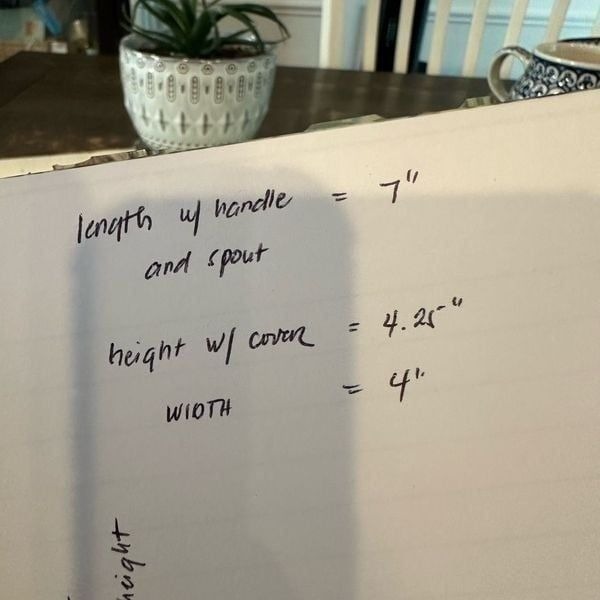 length w/ handle = 7"
and spout
height w/ cover = 4.25"
WIDTH = 4"
height